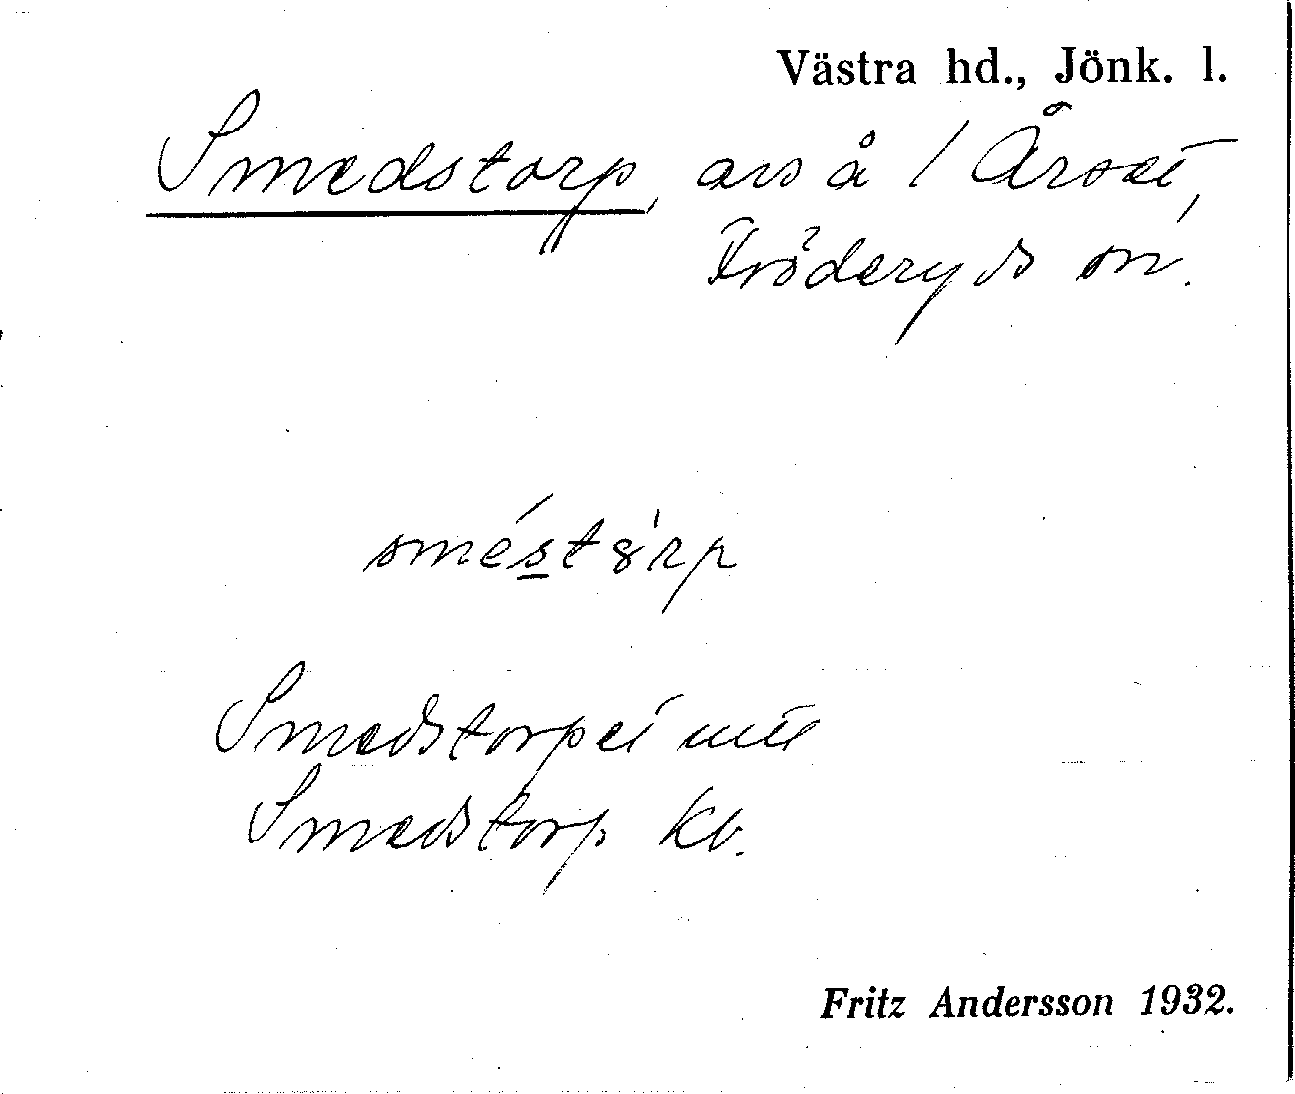 Västra hd., Jönk. l.
Smedstorp, avs å 1 Årset,
Fröderyds sn.
sméstȣ̀rp
Smedstorpet
Smedstorp kb.
Fritz Andersson 1932.